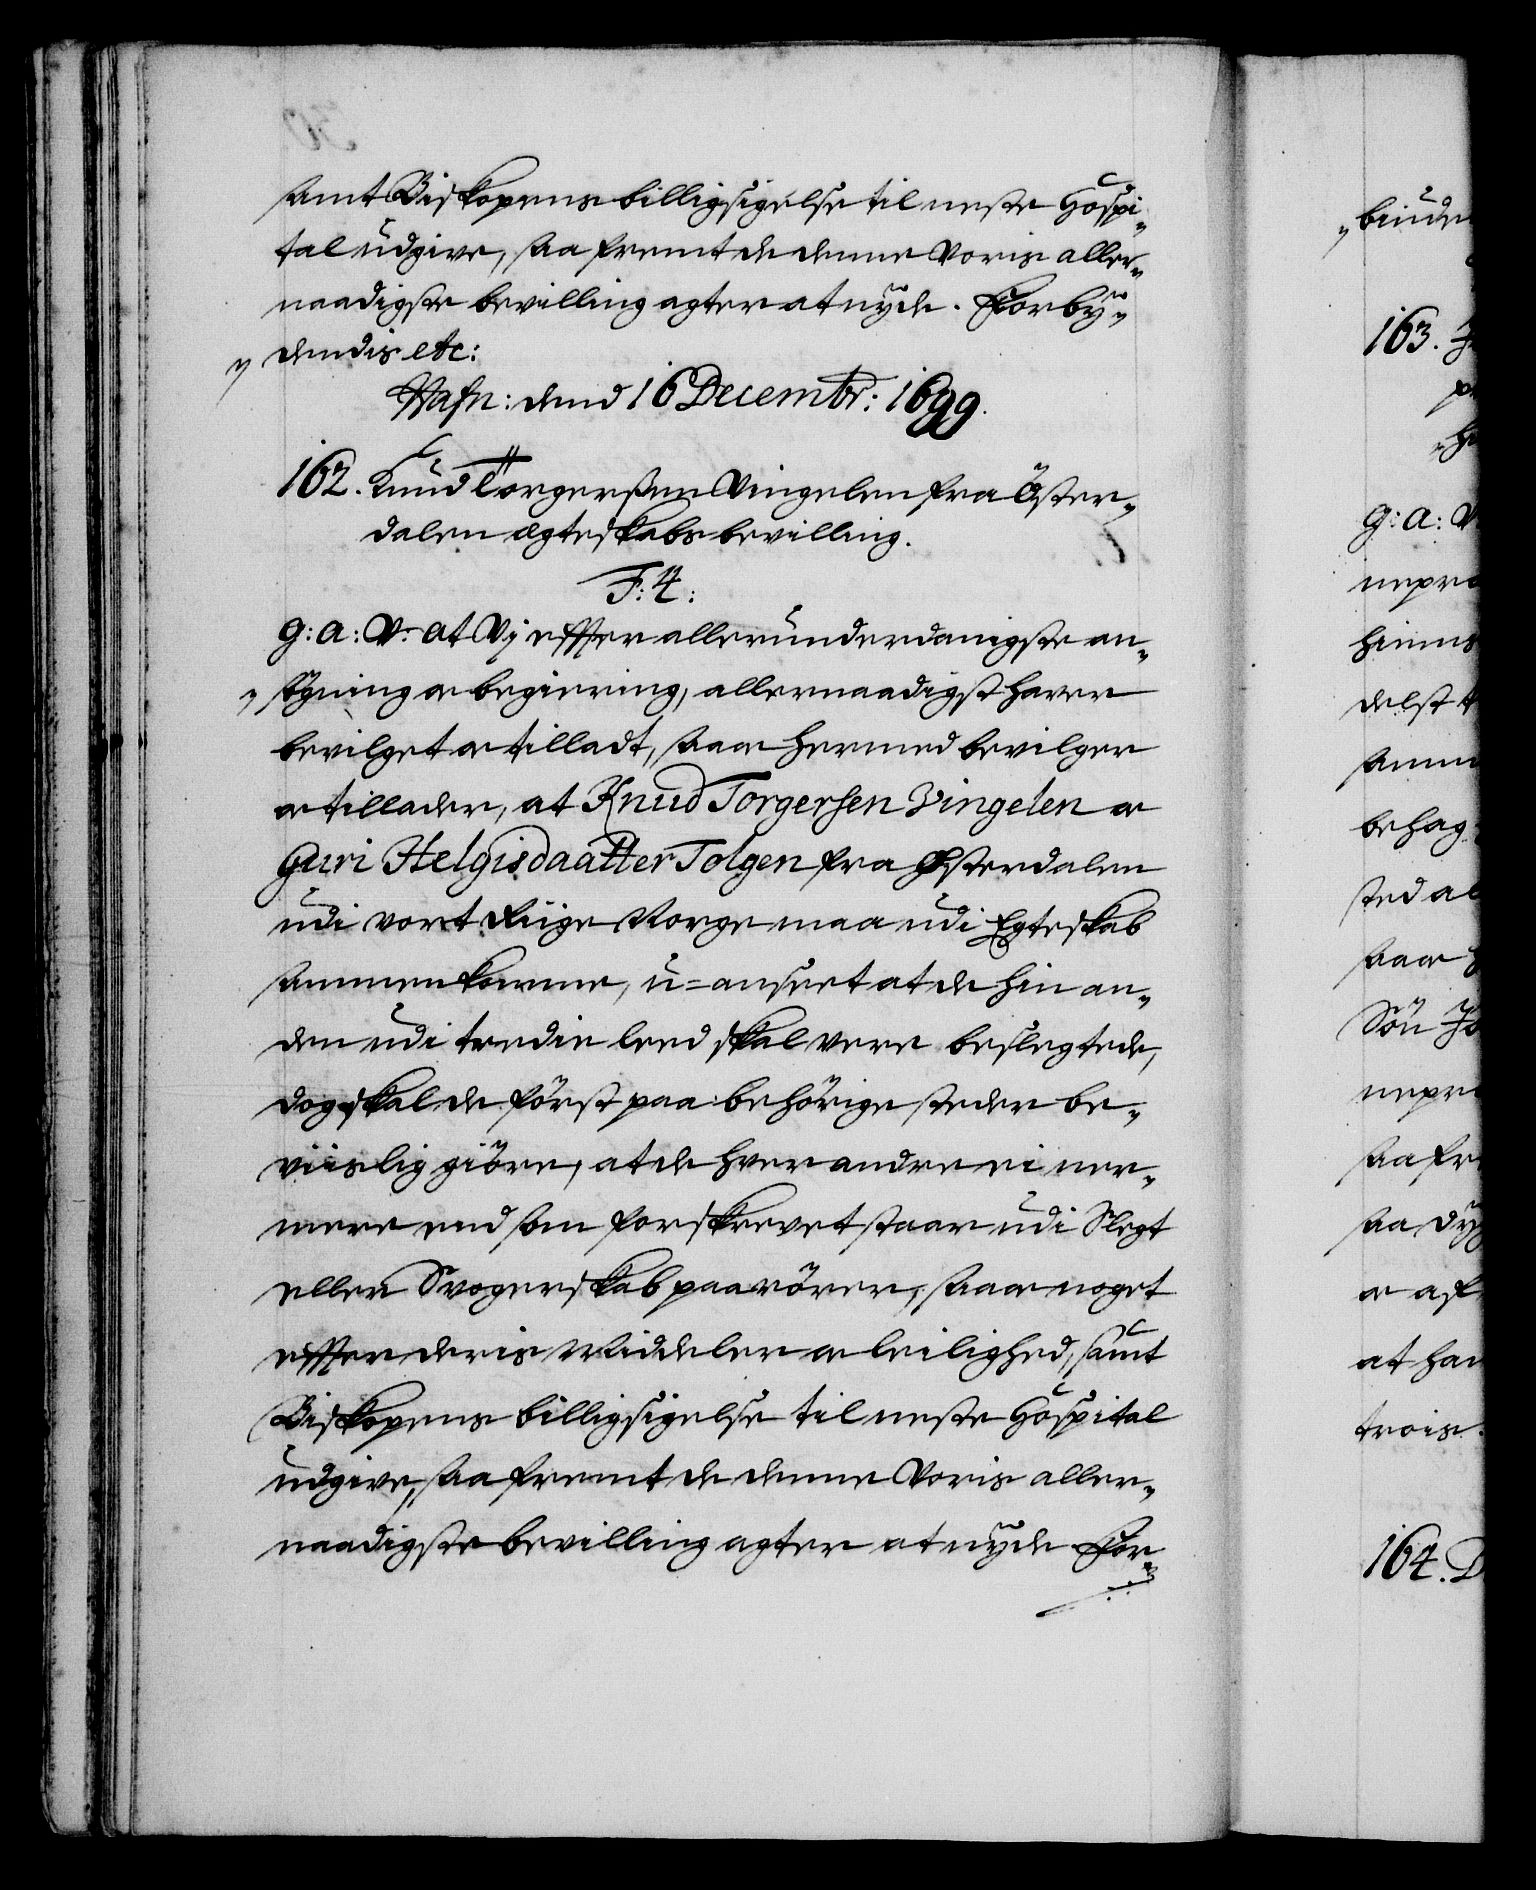 samt Biskopens billigsigelse til neste Hospi„
tal udgive, saa fremt de denne Voris aller„
naadigste bevilling agter at nyde. Forby„
„dendis etc:
Hafn: dend 16 Decembr: 1699.
162. Knud Torgersen Vingelen fra Öster„
dalen ægteskabs bevilling.
F: 4:
G: a: V: at Vj effter allerunderdanigste an„
„søgning oc begiering, allernaadigst haver
bevilget oc tilladt, saa oc hermed bevilger
oc tillader, at Knud Torgersen Vingelen oc
Guri Helgisdaatter Tolgen fra Østerdalen
udi vort Riige Norge maa udi Egteskab
sammenkomme, u=anseet at de hin an„
den udi tredie leed skal vere beslegtede,
dog skal de först paa behörige steder be„
viislig giöre, at de hver andre ei ner„
mere end som forskrevet staar udi Slegt
eller Svogerskab paarörer, saa oc noget
effter deris Middeler oc leilighed, samt
Biskopens billigsigelse til neste Hospital
udgive, saa fremt de denne Voris aller„
naadigste bevilling agter at nyde For„
„biude
163.
g: a: V
nepre
hinns
delst
behag
sted al
saa oc
Sön
nepre
saa fre
saa dy
oc af
at han
trois.
164. D